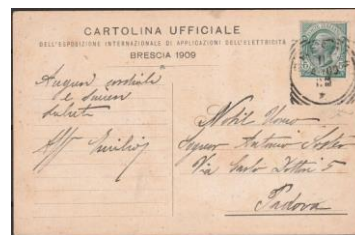 CARTOLINA UFFICIALE
DELL'ESPOSIZIONE INTERNAZIONALE DI APPLICAZIONI DELL'ELETTRICITÀ
BRESCIA 1909
Auguri cordiali
e sinceri
saluti
Aff Emilio
Nobil Uomo
Signor Antonio
Via Carlo 5
Padova